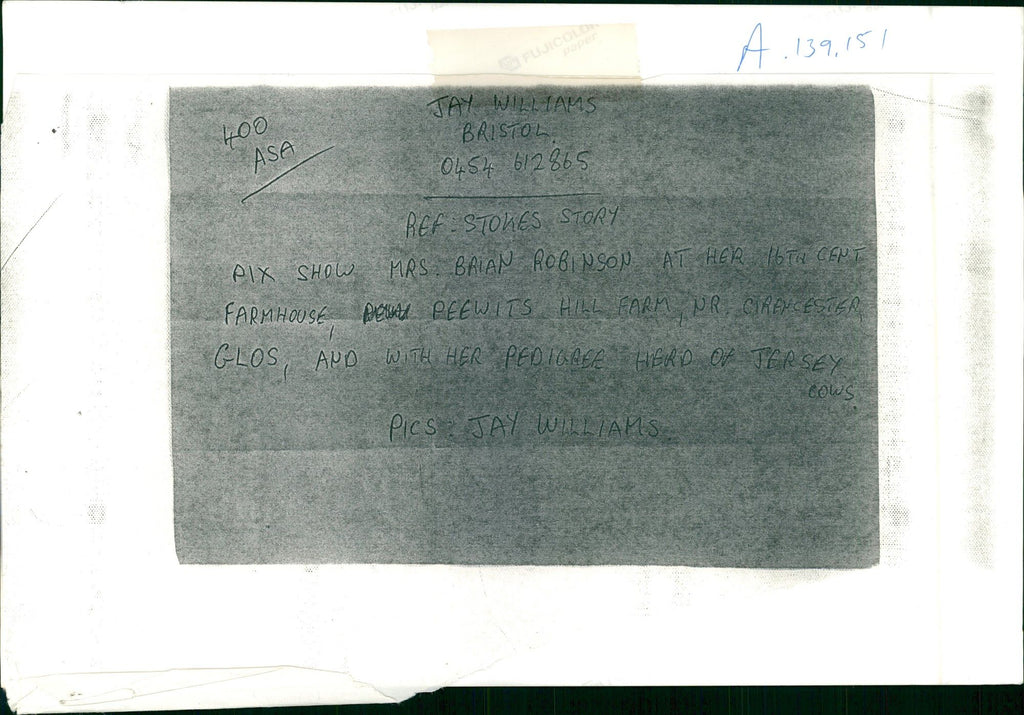 A.139,151
FUJICOLOR
paper
400
ASA
JAY WILLIAMS
BRISTOL
0454 612865
REF: STOKES STORY
PIX SHOW MRS. BRIAN ROBINSON AT HER 16TH CENT
FARMHOUSE, PEEWITS HILL FARM, NR. CIRENCESTER,
GLOS, AND WITH HER PEDIGREE HERD OF JERSEY
COWS.
PICS: JAY WILLIAMS